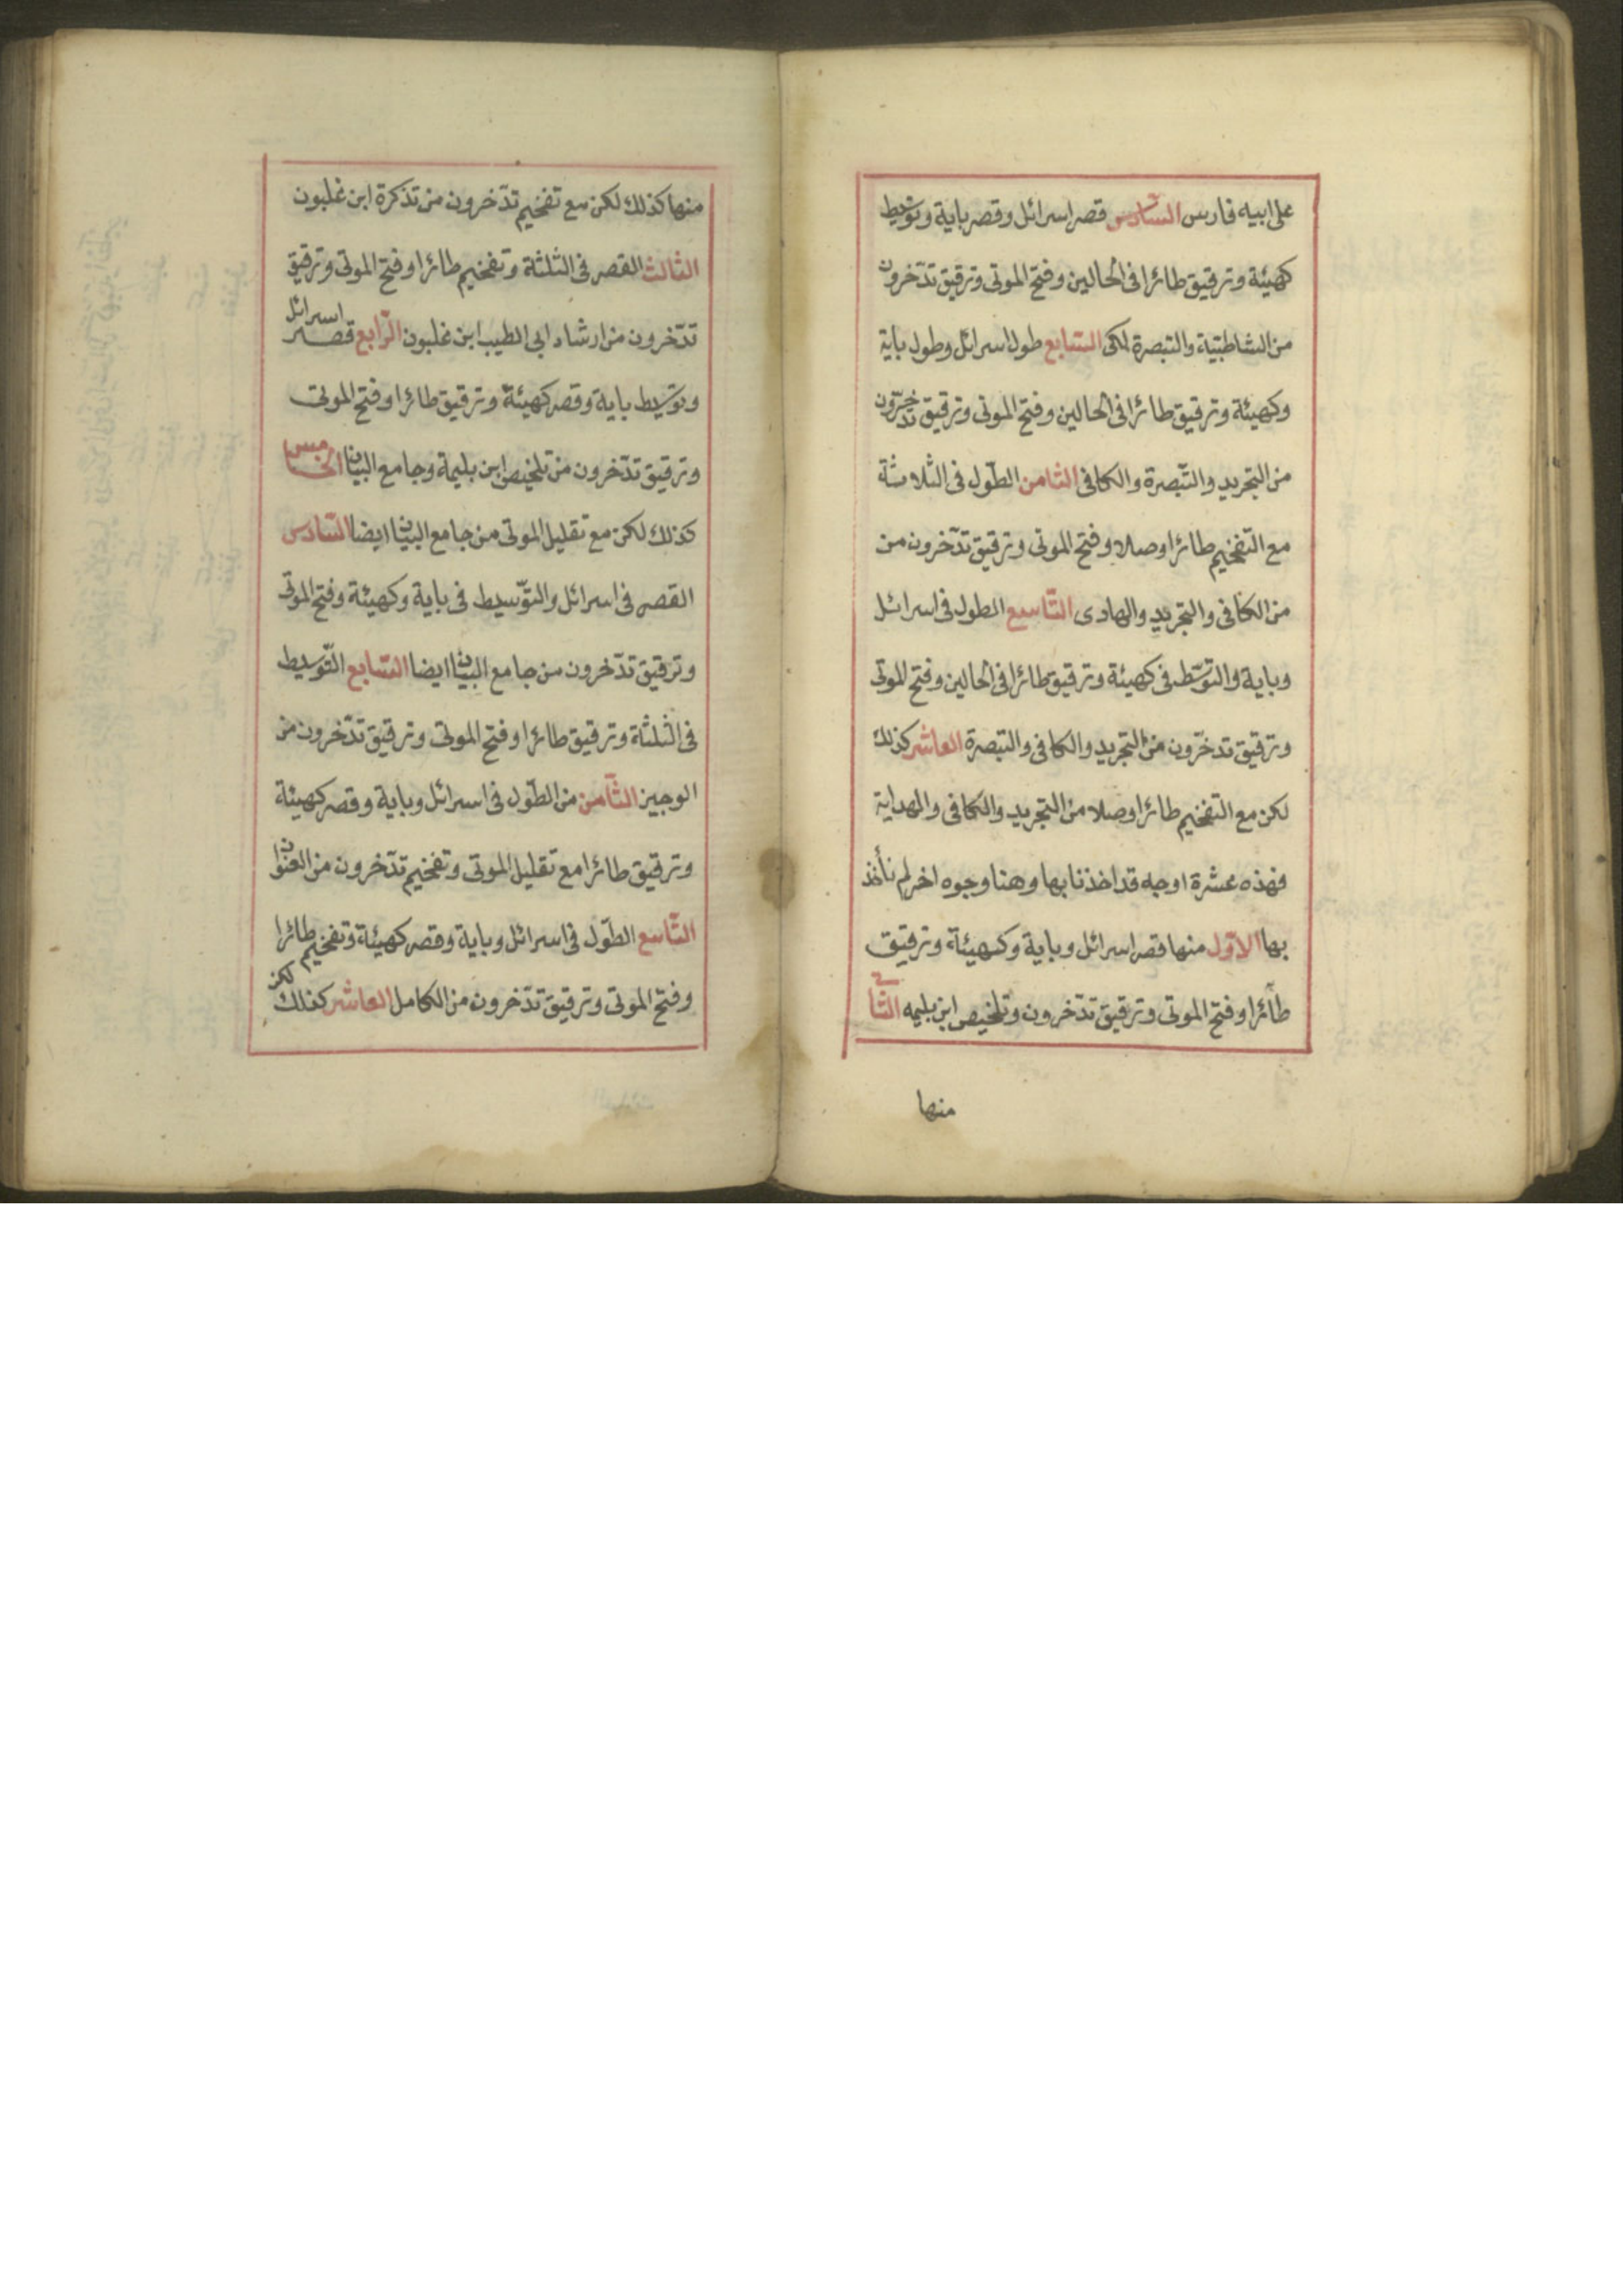 على ابيه فارس السّادس قصر اسرائل وقصر باية وتوسّط
كهيئة وترقيق طائرا فى الحالين وفتح الموتى وترقيق تدّخرون
من الشاطبيّة والتبصرة لمكى السّابع طول اسرائل وطول باية
وكهيئة وترقيق طائرا فى الحالين وفتح الموتى وترقيق تدّخرون
من التجريد والتّبصرة والكافى الثامن الطّول فى الثلاثة
مع التّفخيم طائرا وصلا وفتح الموتى وترقيق تدّخرون من
من الكافى والتجريد والهادى التّاسع المطول فى اسرائل
وباية والتوسّط فى كهيئة وترقيق طائرا فى الحالين وفتح الموتى
وترقيق تدخّرون من التجريد والكافى والتبصرة العاشر كذلك
لكن مع التفخيم طائرا وصلا من التجريد والكافى والهداية
فهذه عشرة اوجه قد اخذنا بها وهنا وجوه اخر لم نأخذ
بها الاوّل منها قصر اسرائل وباية وكهيئة وترقيق
طائرا وفتح الموتى وترقيق تدّخرون وتلخيص ابن بليمه الثانى
منها
منها كذلك لكن مع تفخيم تدّخرون من تذكرة ابن غلبون
الثالث القصر فى الثلثة وتفخيم طائرا وفتح الموتى وترقيق
تدّخرون من ارشاد ابى الطيب ابن غلبون الرّابع قصر اسرائل
وتوسّيط باية وقصر كهيئة وترقيق طائرا وفتح الموتى
وترقيق تدّخرون من تلخيص ابن بليمة وجامع البيان الخامس
كذلك لكن مع تقليل الموتى من جامع البيان ايضا السّادس
القصر فى اسرائل والتوّسيط فى باية وكهيئة وفتح الموتى
وترقيق تدّخرون من جامع البيان ايضا السّابع التّوسيط
فى الثلثة وترقيق طائرا وفتح الموتى وترقيق تدّخرون من
الوجيز الثّامن من الطّول فى اسرائل وباية وقصر كهيئة
وترقيق طائرا مع تقليل الموتى وتفخيم تدّخرون من العنوان
التّاسع الطّول فى اسرائل وباية وقصر كهيئة وتفخيم طائرا
وفتح الموتى وترقيق تدّخرون من الكامل العاشر كذلك لكن